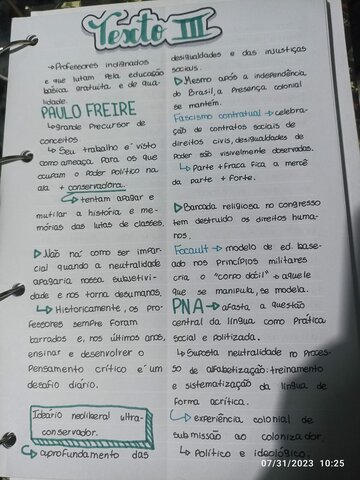 Texto III
→ Professores indignados
e que lutam pela educação
básica gratuita e de qua-
lidade.
PAULO FREIRE
↳ Grande Precursor de
conceitos
↳ Seu trabalho é visto
como ameaça para os que
ocupam o poder político na
ala + conservadora.
↳ tentam apagar e
mutilar a história e me-
mórias das lutas de classes.
▷ Não há como ser impar-
cial quando a neutralidade
apagaria nossa subjetivi-
dade e nos torna desumanos.
↳ Historicamente, os pro-
fessores sempre foram
barrados e, nos últimos anos,
ensinar e desenvolver o
pensamento crítico é um
desafio diário.
Ideário neoliberal ultra-
conservador.
↳ aprofundamento das
desigualdades e das injustiças
sociais.
▷ Mesmo após a independência
do Brasil, a presença colonial
se mantém.
Fascismo contratual → celebra-
ção de contratos sociais de
direitos civis, desigualdades de
poder são visivelmente observadas.
↳ Parte + fraca fica a mercê
da parte + forte.
▷ Bancada religiosa no congresso
tem destruído os direitos huma-
nos.
Focault → modelo de ed. base-
ado nos princípios militares
cria o "corpo dócil" → aquele
que se manipula, se modela.
PNA → afasta a questão
central da língua como prática
social e politizada.
↳ Suposta neutralidade no proces-
so de alfabetização: treinamento
e sistematização da língua de
forma acrítica.
↳ experiência colonial de
submissão ao colonizador.
↳ Político e ideológico.
07/31/2023 10:25